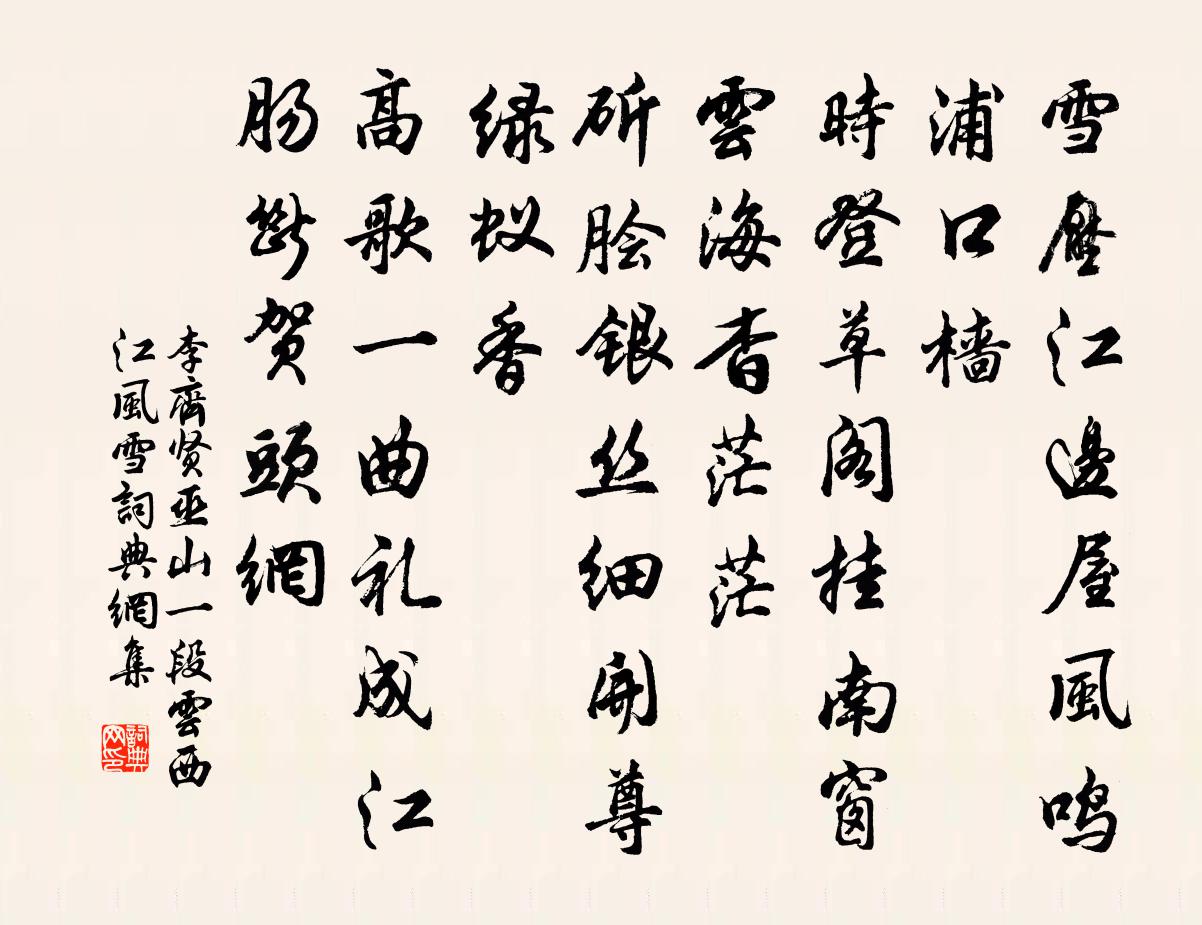 雪壓江邊屋風鸣
浦口樯
時登草阁挂南窗
雲海杳茫茫
斫脍银丝细開尊
绿蚁香
高歌一曲礼成江
肠斷贺頭網
李齊贤巫山一段雲西
江風雪詞典網集
詞典网印